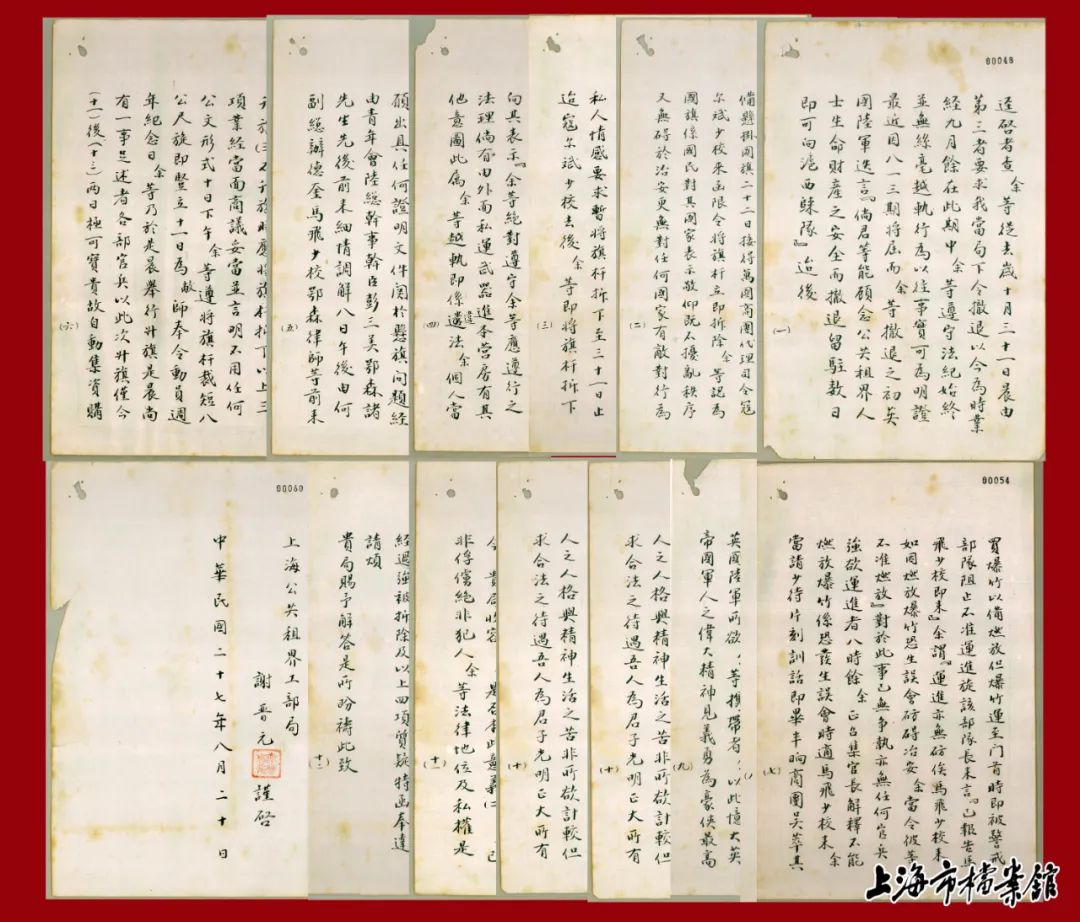 80048
逕啓者查余等從去歲十月三十一日晨由
第三者要求我當局下令撤退以今為時業
經九月餘在此期中余等遵守法紀始終
並無絲毫越軌行為以往事實可為明證
最近因八一三期將屆而余等撤退之初英
國陸軍迭言『倘君等能顧念公共租界人
士生命財產之安全而撤退留駐數日
即可向滬西歸隊』迨後
(一)
備懸掛國旗二十二日接得萬國商團代理司令寇
尔斌少校来函限令將旗杆立即拆除余等認為
國旗係國民對其國家表示敬仰既不擾亂秩序
又無碍於治安更無對任何國家有敵對行為
(二)
私人情感要求暫將旗杆拆下至三十一日止
迨寇尔斌少校去後余等即將旗杆拆下
(三)
向其表示『余等絕對遵守余等應遵行之
法理倘有由外面私運武器進本營房有其
他意圖此為余等越軌即係違法余個人當
(四)
願出具任何證明文件関於懸旗问題經
由青年會陸總幹事幹臣彭三美鄂森諸
先生先後前来細情調解八日午後由何
副總辦德奎馬飛少校鄂森律師等前来
(五)
項業經當面商議妥當並言明不用任何
公文形式十日下午余等遵將旗杆裁短八
公尺旋即豎立十一日為敝師奉令動員週
年紀念日余等乃於是晨舉行升旗是晨尚
有一事足述者各部官兵以此次升旗僅今
(十一)後(十三)兩日極可寶貴故自動集資購
(六)
80054
買爆竹以備燃放但爆竹運至門首時即被警戒
部隊阻止不准運進旋該部隊長来言『已報告馬
飛少校即来』余謂『運進亦無妨俟馬飛少校来
如因燃放爆竹恐生誤會碍治安余當令彼等
不准燃放』對於此事已無争執亦無任何官兵
強欲運進者八時餘余正召集官長解釋不能
燃放爆竹係恐發生誤會時適馬飛少校来余
當請少待片刻訓話即畢半晌商團吴華其
(七)
英國陸軍所欲余等攜帶者以此憧大英
帝國軍人之偉大精神見義勇為豪俠最高
(九)
人之人格與精神生活之苦非所欲計較但
求合法之待遇吾人為君子光明正大所有
(十)
人之人格與精神生活之苦非所欲計較但
求合法之待遇吾人為君子光明正大所有
(十)
非俘虜絕非犯人余等法律地位及私權是
(十一)
經過強被拆除及以上四項質疑特函奉達
請煩
貴局賜予解答是所盼禱此致
(十二)
80060
上海公共租界工部局
謝晋元 謹啓
中華民國二十七年八月二十日
上海市檔案館